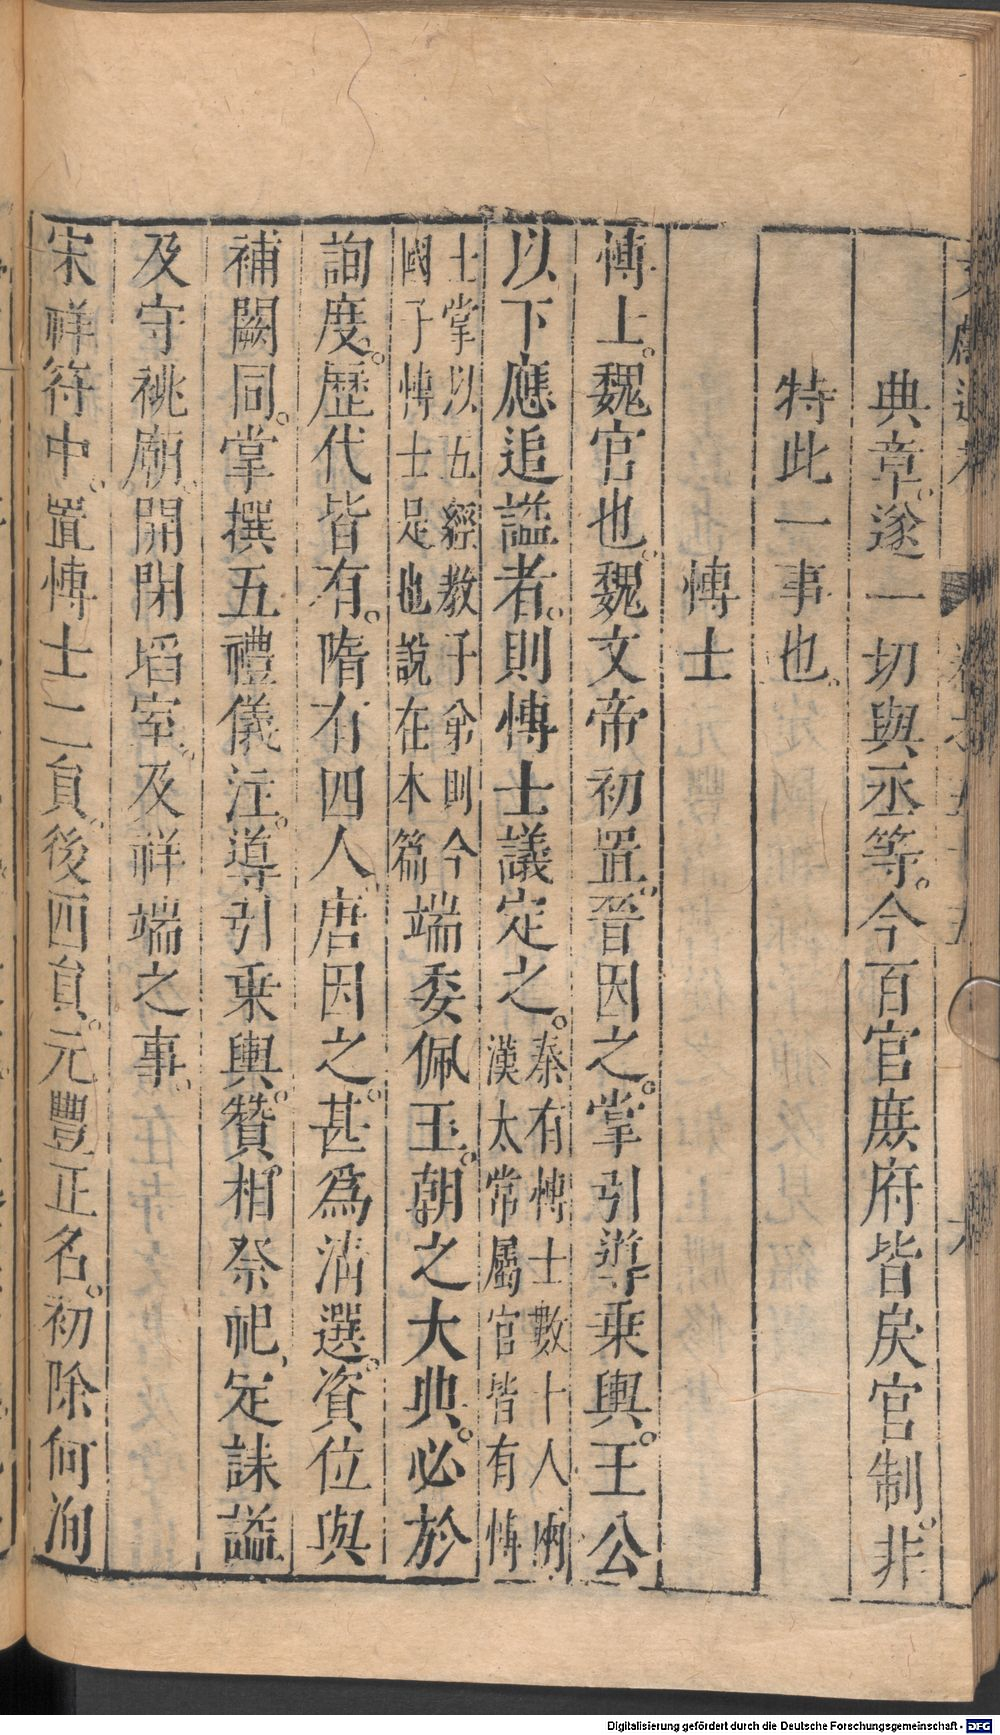 典章。遂一切與丞等。今百官庶府皆戾官制。非
特此一事也。
博士
博士。魏官也。魏文帝初置。晉因之。掌引導乘輿。王公
以下應追謚者。則博士議定之。秦有博士數十人兩
漢太常屬官皆有博
士掌以五經教子弟則今
國子博士是也說在本篇端委佩玉。朝之大典。必於
詢度。歷代皆有。隋有四人。唐因之。甚為清選。資位與
補闕同。掌撰五禮儀注。導引乘輿。贊相祭祀、定誄謚
及守祧廟。開閉埳室。及祥端之事。
宋祥符中。置博士二員。後四員。元豐正名。初除何洵
Digitalisierung gefördert durch die Deutsche Forschungsgemeinschaft - DFG